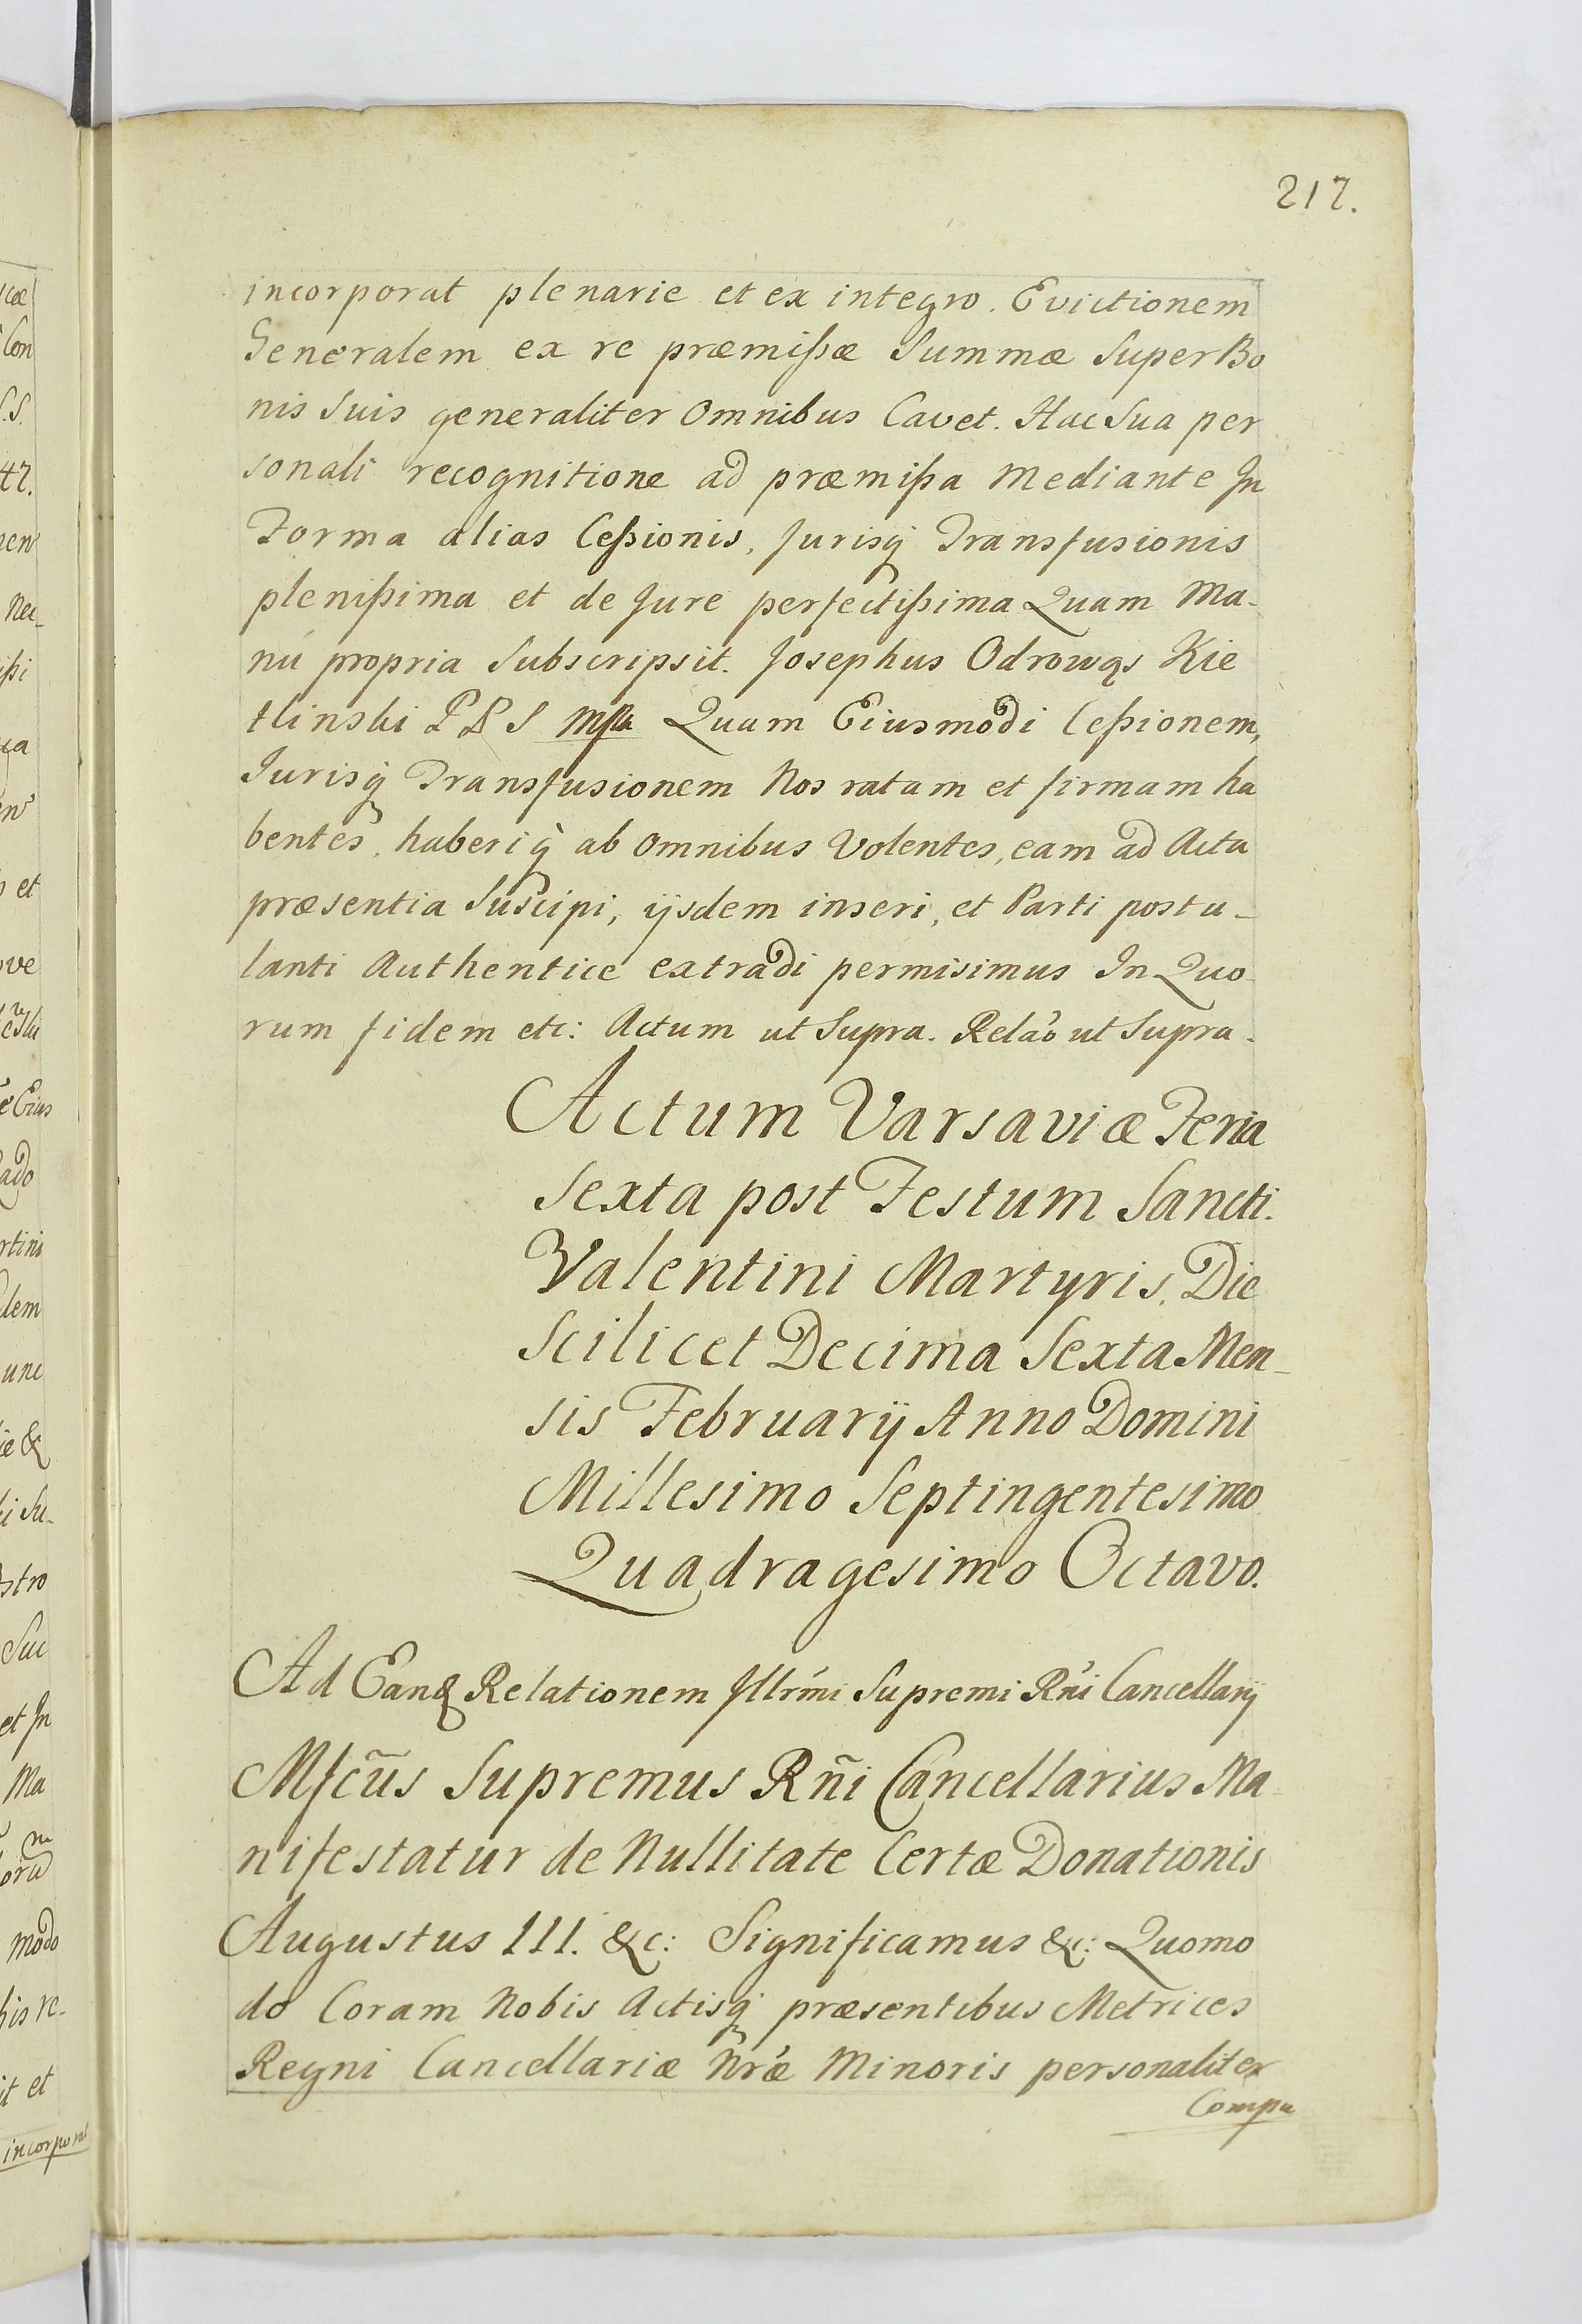 217.
incorporat plenarie et ex integro. Evictionem
Generalem ex re præmißæ Summæ Super Bo
nis Suis generaliter Omnibus Cavet. Hac Sua per
sonali recognitione ad præmißa Mediante In
Forma alias Ceßionis, Jurisq́ Transfusionis
plenißima et de Jure perfectißima Quam Ma-
nu propria Subscripsit. Josephus Odrowąs Kie
tlinski P P S mpa Quam Eiusmodi Ceßionem,
Jurisq́ Transfusionem Nos ratam et firmam ha
bentes, haberiq̀ ab Omnibus Volentes, eam ad Acta
præsentia Suscipi, ijsdem inseri, et Parti postu-
lanti Authentice extradi permisimus In Quo
rum fidem etc: Actum ut Supra. Relaõ ut Supra.
Actum Varsaviæ Feria
Sexta post Festum Sancti
Valentini Martyris, Die
Scilicet Decima Sexta Men-
sis Februarij Anno Domini
Millesimo Septingentesimo
Quadragesimo Octavo.
Ad Eandẽ Relationem Illrḿi Supremi Rńi Cancellarij
Mfcũs Supremus Rñi Cancellarius Ma
nifestatur de Nullitate Certæ Donationis
Augustus III. &c: Significamus &c: Quomo
do Coram Nobis Actisq́ præsentibus Metrices
Regni Cancellariæ Nŕæ Minoris personaliter
Compa